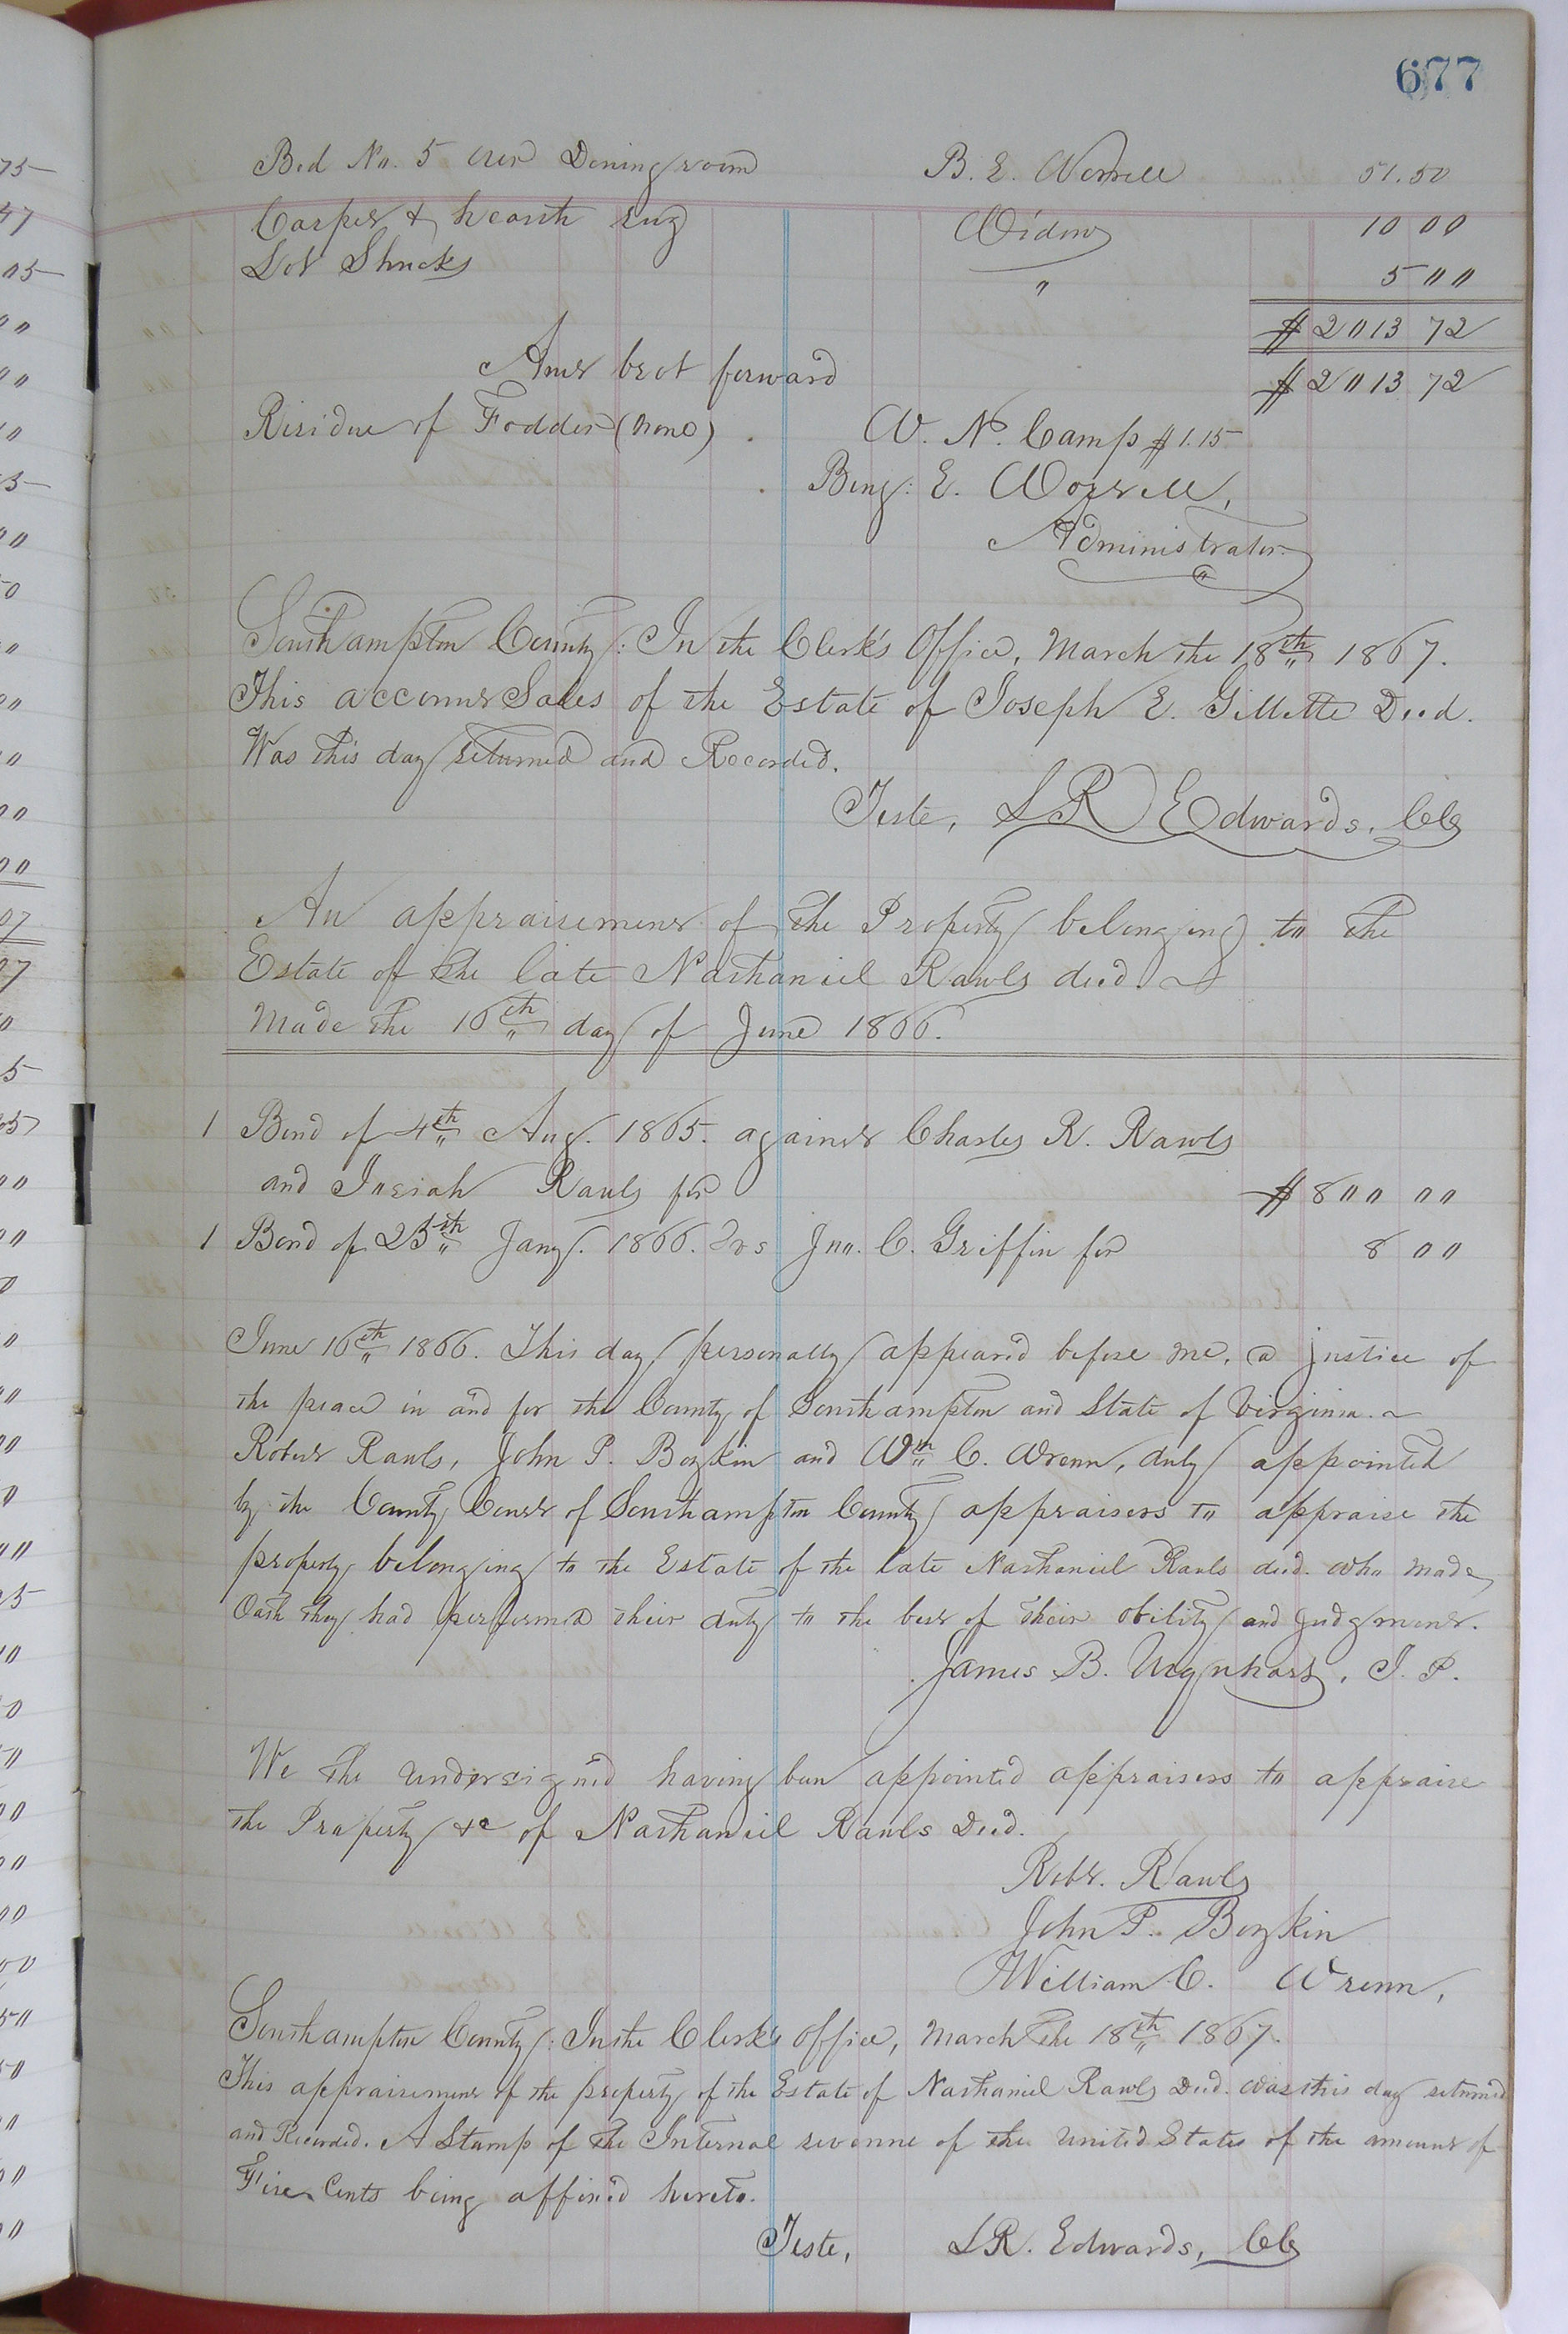 677
Bed No. 5 over Dining room B. E. Worrell 51.50
Carpet & hearth rug Widow 10 00
Lot Shucks " 5 00
$2013 72
Amt brot forward $2013 72
Residue of Fodder (none) W. N. Camp $1.15
Benj: E. Worrell,
Administrator.
Southampton County: In the Clerk's Office, March the 18th 1867.
This account Sales of the Estate of Joseph E. Gillette Decd.
Was this day returned and Recorded.
Teste, L R Edwards, Clk
An appraisement of the Property belonging to the
Estate of the late Nathaniel Rawls decd.
Made the 16th day of June 1866.
1 Bond of 4th Aug. 1865. against Charles R. Rawls
and Josiah Rawls for $800 00
1 Bond of 25th Jany. 1866. Jno. C. Griffin for 8 00
June 16th 1866. This day personally appeared before me, a justice of
the peace in and for the County of Southampton and State of Virginia.
Robert Rawls, John P. Boykin and Wm C. Wrenn, duly appointed
by the County Court of Southampton County appraisers to appraise the
property belonging to the Estate of the late Nathaniel Rawls decd. who made
Oath they had performed their duty to the best of their ability and judgment.
James B. Urquhart, J. P.
We the undersigned having been appointed appraisers to appraise
the Property &c of Nathaniel Rawls Decd.
Robt. Rawls
John P. Boykin
William C. Wrenn,
Southampton County: In the Clerk's office, March the 18th 1867.
This appraisement of the property of the Estate of Nathaniel Rawls Decd. was this day returned
and Recorded. A Stamp of the Internal revenue of the United States of the amount of
Five Cents being affixed hereto.
Teste, L R. Edwards, Clk